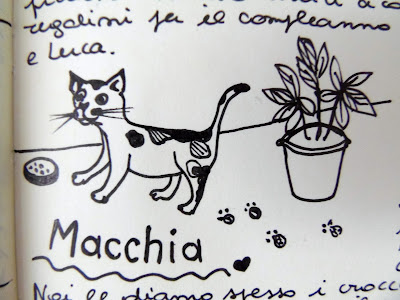 regalini per il compleanno
e Luca.
Macchia
Noi le diamo spesso i crocc